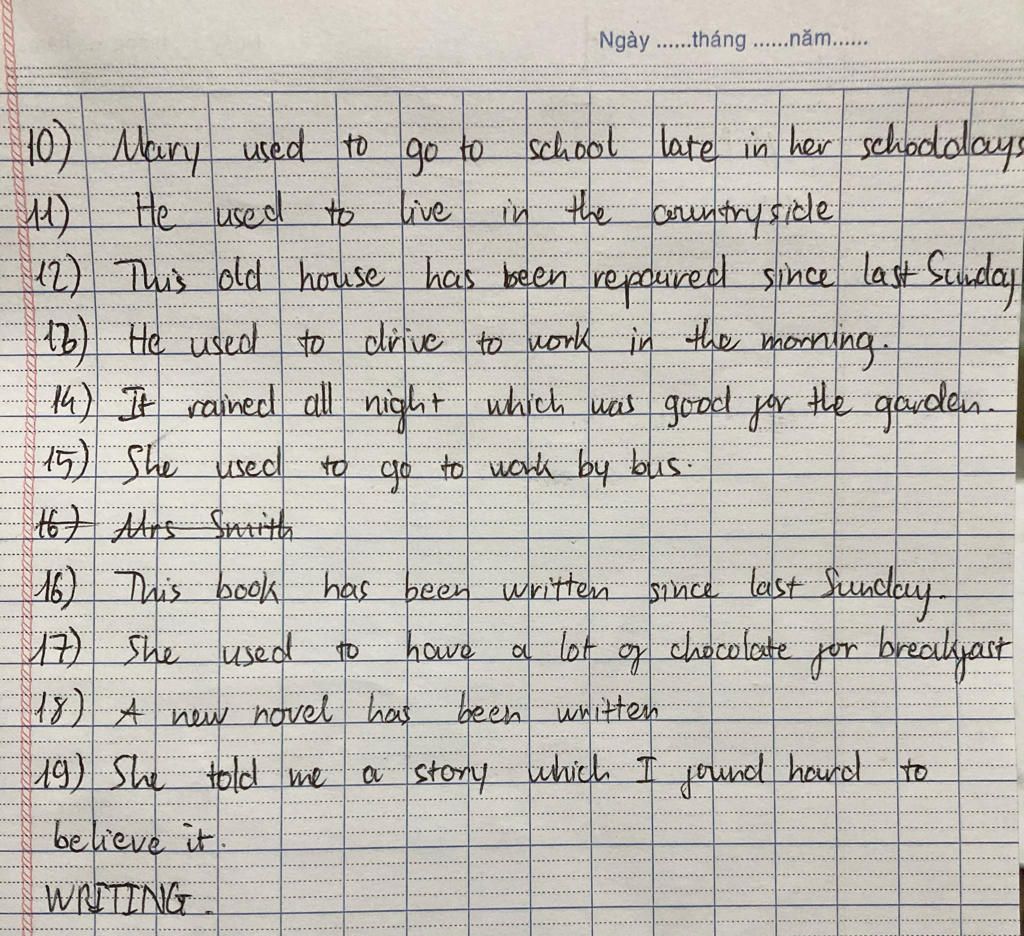 Ngày ......tháng ......năm......
10) Mary used to go to school late in her schooldays
11) He used to live in the countryside
12) This old house has been repaired since last Sunday
13) He used to drive to work in the morning.
14) It rained all night which was good for the garden.
15) She used to go to work by bus.
16) Mrs Smith
16) This book has been written since last Sunday.
17) She used to have a lot of chocolate for breakfast
18) A new novel has been written
19) She told me a story which I found hard to
believe it.
WRITING.